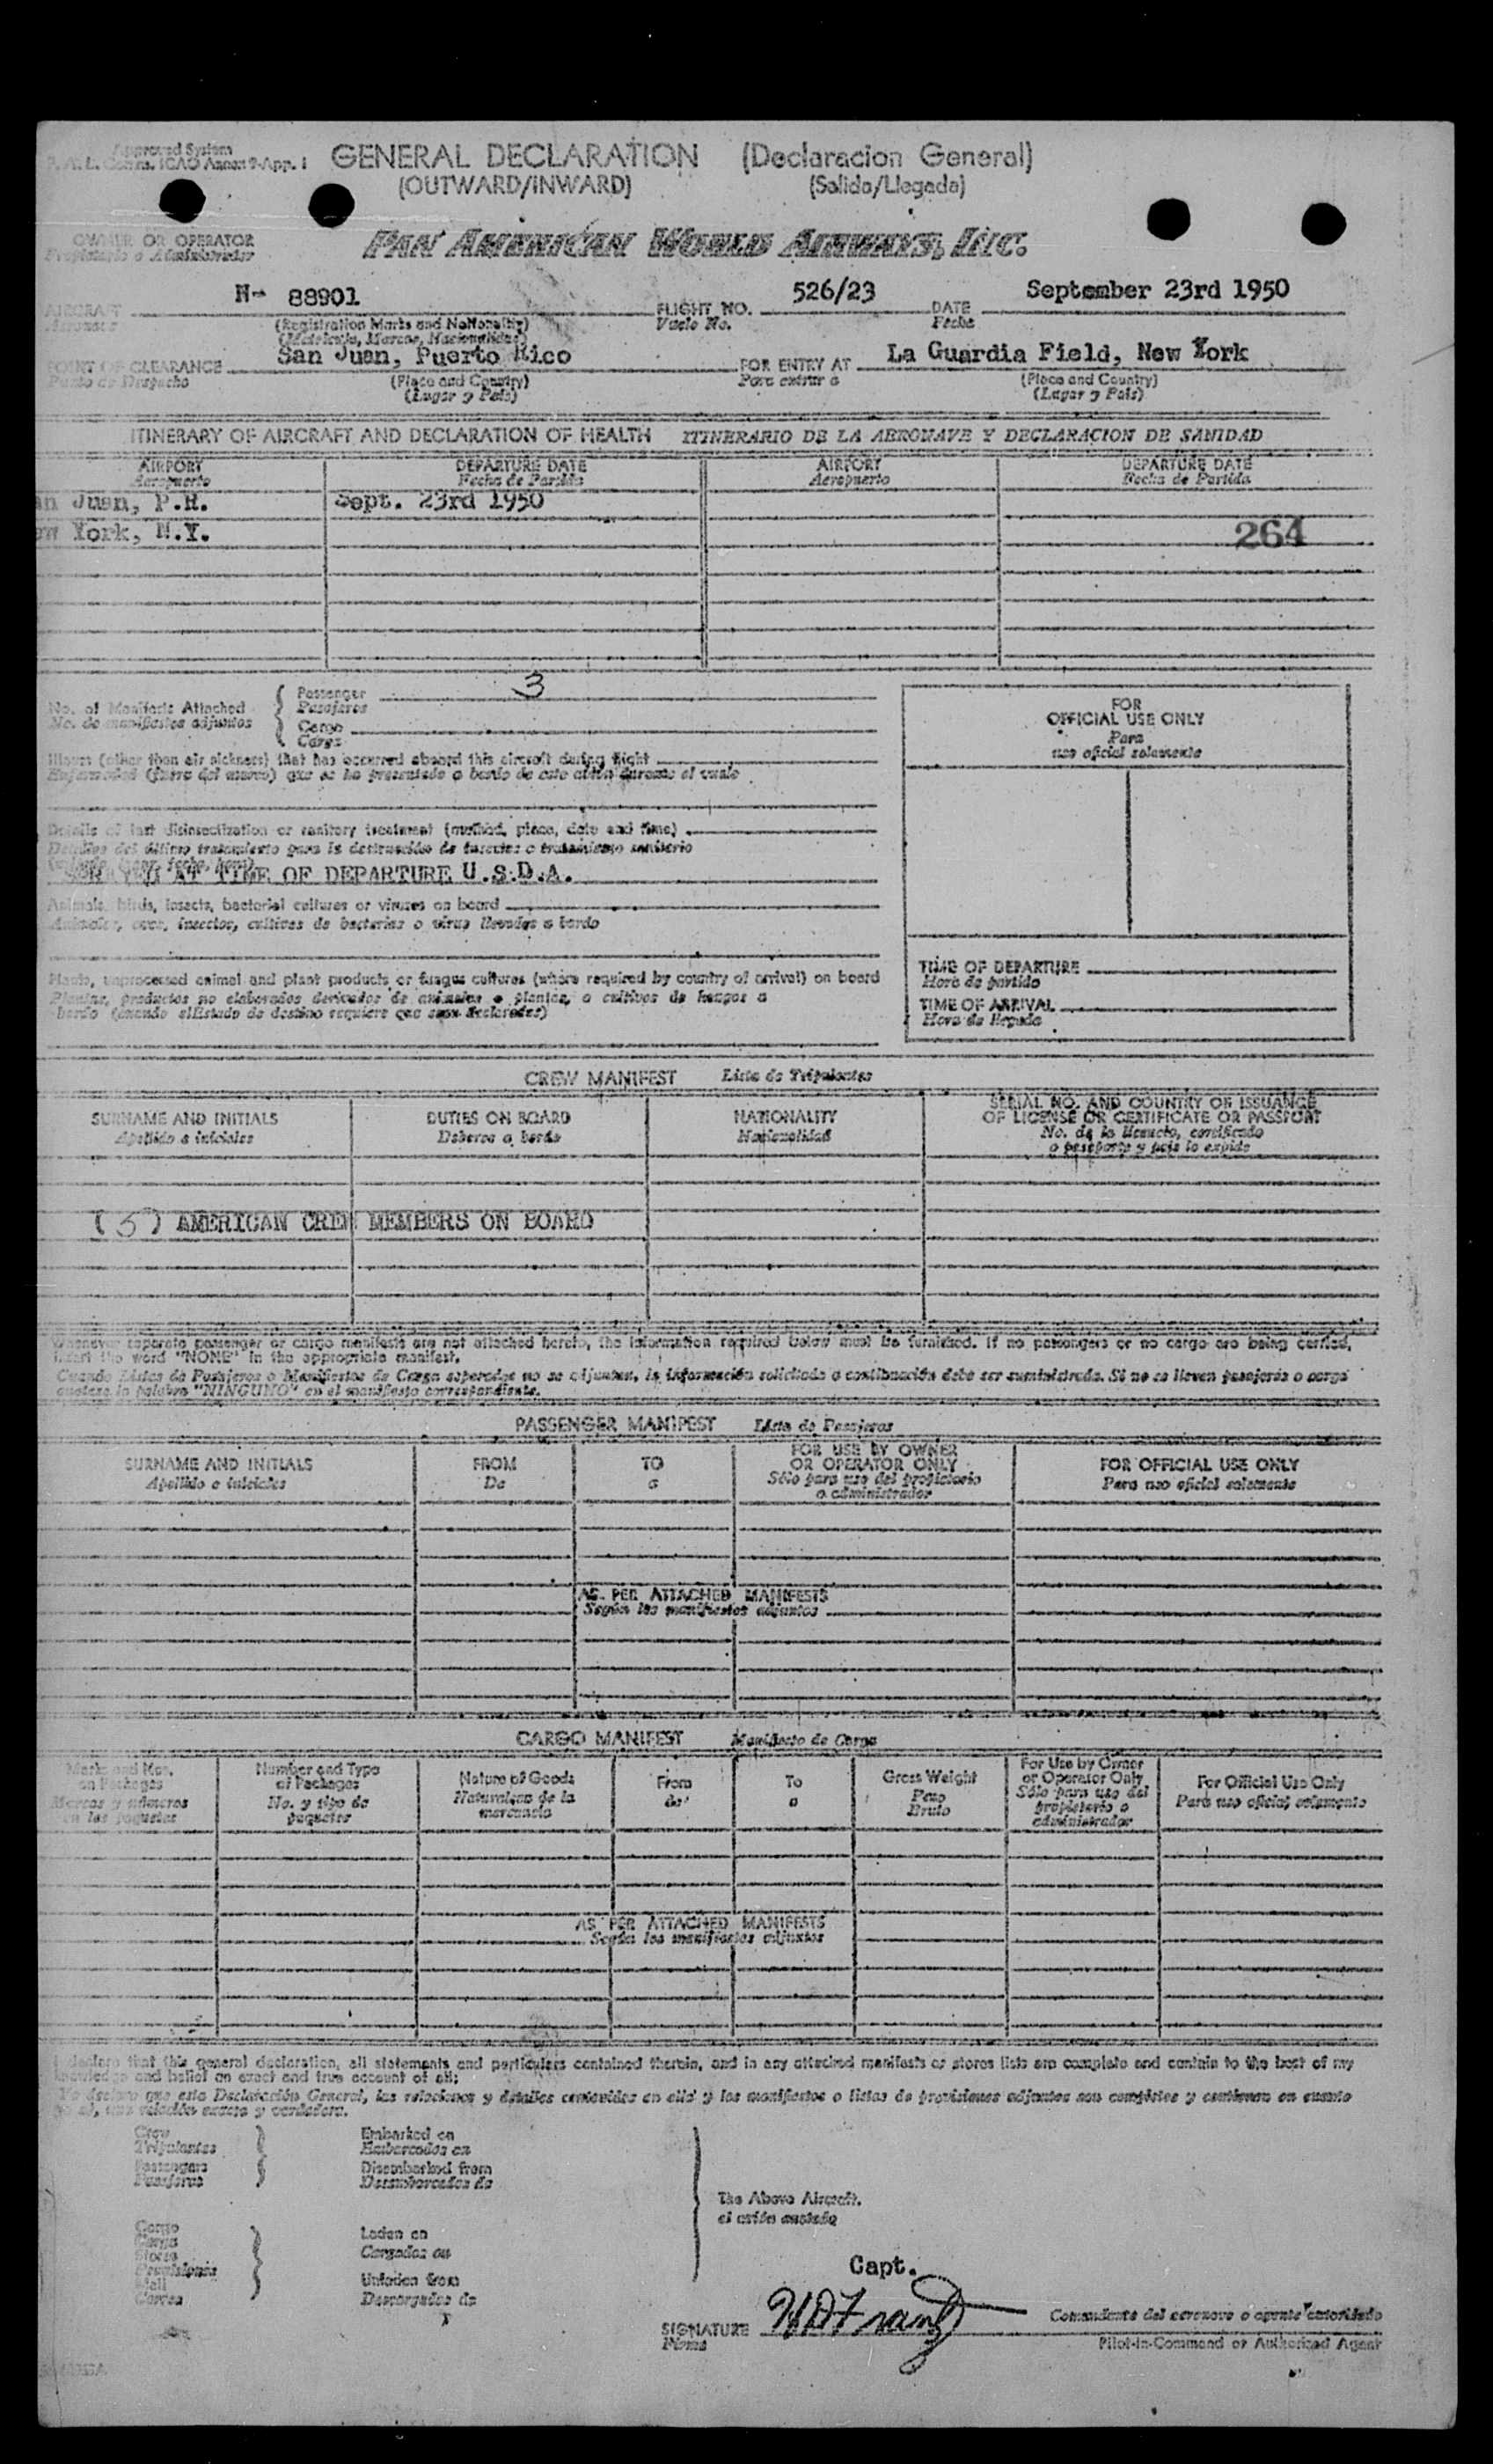 Approved System
GENERAL DECLARATION (Declaracion General)
ICAO Annex 9-App. 1
(OUTWARD/INWARD) (Salida/Llegada)
OWNER OR OPERATOR PAN AMERICAN WORLD AIRWAYS, INC.
Propietario o Administrador
AIRCRAFT N- 88901 FLIGHT NO. 526/23 DATE September 23rd 1950
Aeronave (Registration Marks and Nationality) Vuelo No. Fecha
(Matricula, Marcas, Nacionalidad)
POINT OF CLEARANCE San Juan, Puerto Rico FOR ENTRY AT La Guardia Field, New York
Punto de Despacho (Place and Country) Para entrar a (Place and Country)
(Lugar y Pais) (Lugar y Pais)
ITINERARY OF AIRCRAFT AND DECLARATION OF HEALTH ITINERARIO DE LA AERONAVE Y DECLARACION DE SANIDAD
AIRPORT DEPARTURE DATE AIRPORT DEPARTURE DATE
Aeropuerto Fecha de Partida Aeropuerto Fecha de Partida
an Juan, P.R. Sept. 23rd 1950
ew York, N.Y. 264
No. of Manifests Attached Passenger 3
No. de manifiestos adjuntos Pasajeros
Cargo
Carga
FOR
OFFICIAL USE ONLY
Para
uso oficial solamente
Illness (other than air sickness) that has occurred aboard this aircraft during flight
Enfermedad (fuera del mareo) que se ha presentado a bordo de este avión durante el vuelo
Details of last disinsectization or sanitary treatment (method, place, date and time)
Detalles del último tratamiento para la destrucción de insectos o tratamiento sanitario
AT TIME OF DEPARTURE U.S.D.A.
Animals, birds, insects, bacterial cultures or viruses on board
Animales, aves, insectos, cultivos de bacterias o virus llevados a bordo
Plants, unprocessed animal and plant products or fungus cultures (where required by country of arrival) on board
Plantas, productos no elaborados derivados de animales o plantas, o cultivos de hongos a
bordo (cuando el Estado de destino requiere que sean declarados)
TIME OF DEPARTURE
Hora de partida
TIME OF ARRIVAL
Hora de llegada
CREW MANIFEST Lista de Tripulantes
SURNAME AND INITIALS DUTIES ON BOARD NATIONALITY SERIAL NO. AND COUNTRY OF ISSUANCE
OF LICENSE OR CERTIFICATE OR PASSPORT
Apellido e iniciales Deberes a bordo Nacionalidad No. de la licencia, certificado
o pasaporte y pais lo expide
(5) AMERICAN CREW MEMBERS ON BOARD
Whenever separate passenger or cargo manifests are not attached hereto, the information required below must be furnished. If no passengers or no cargo are being carried,
insert the word "NONE" in the appropriate manifest.
Cuando Listas de Pasajeros o Manifiestos de Carga separados no se adjuntan, la información solicitada a continuación debe ser suministrada. Si no se llevan pasajeros o carga
anotese la palabra "NINGUNO" en el manifiesto correspondiente.
PASSENGER MANIFEST Lista de Pasajeros
SURNAME AND INITIALS FROM TO FOR USE BY OWNER
OR OPERATOR ONLY FOR OFFICIAL USE ONLY
Apellido e iniciales De a Sólo para uso del propietario
o administrador Para uso oficial solamente
AS PER ATTACHED MANIFESTS
Según los manifiestos adjuntos
CARGO MANIFEST Manifiesto de Carga
Marks and Nos.
on Packages
Marcas y números
en los paquetes
Number and Type
of Packages
No. y tipo de
paquetes
Nature of Goods
Naturaleza de la
mercancia
From
de
To
a
Gross Weight
Peso
Bruto
For Use by Owner
or Operator Only
Sólo para uso del
propietario o
administrador
For Official Use Only
Para uso oficial solamente
AS PER ATTACHED MANIFESTS
Según los manifiestos adjuntos
I declare that this general declaration, all statements and particulars contained therein, and in any attached manifests or stores lists are complete and contain to the best of my
knowledge and belief an exact and true account of all:
Yo declaro que esta Declaración General, las relaciones y detalles contenidos en ella y los manifiestos o listas de provisiones adjuntos son completos y contienen en cuanto
yo sé, una relación exacta y verdadera.
Crew Embarked on
Tripulantes Embarcados en
Passengers Disembarked from
Pasajeros Desembarcados de
The Above Aircraft.
el avión anotado
Cargo
Carga
Stores
Provisiones
Mail
Correo
Laden on
Cargados en
Unladen from
Descargados de
Capt.
SIGNATURE
Firma
Comandante del aeronave o agente autorizado
Pilot-in-Command or Authorized Agent